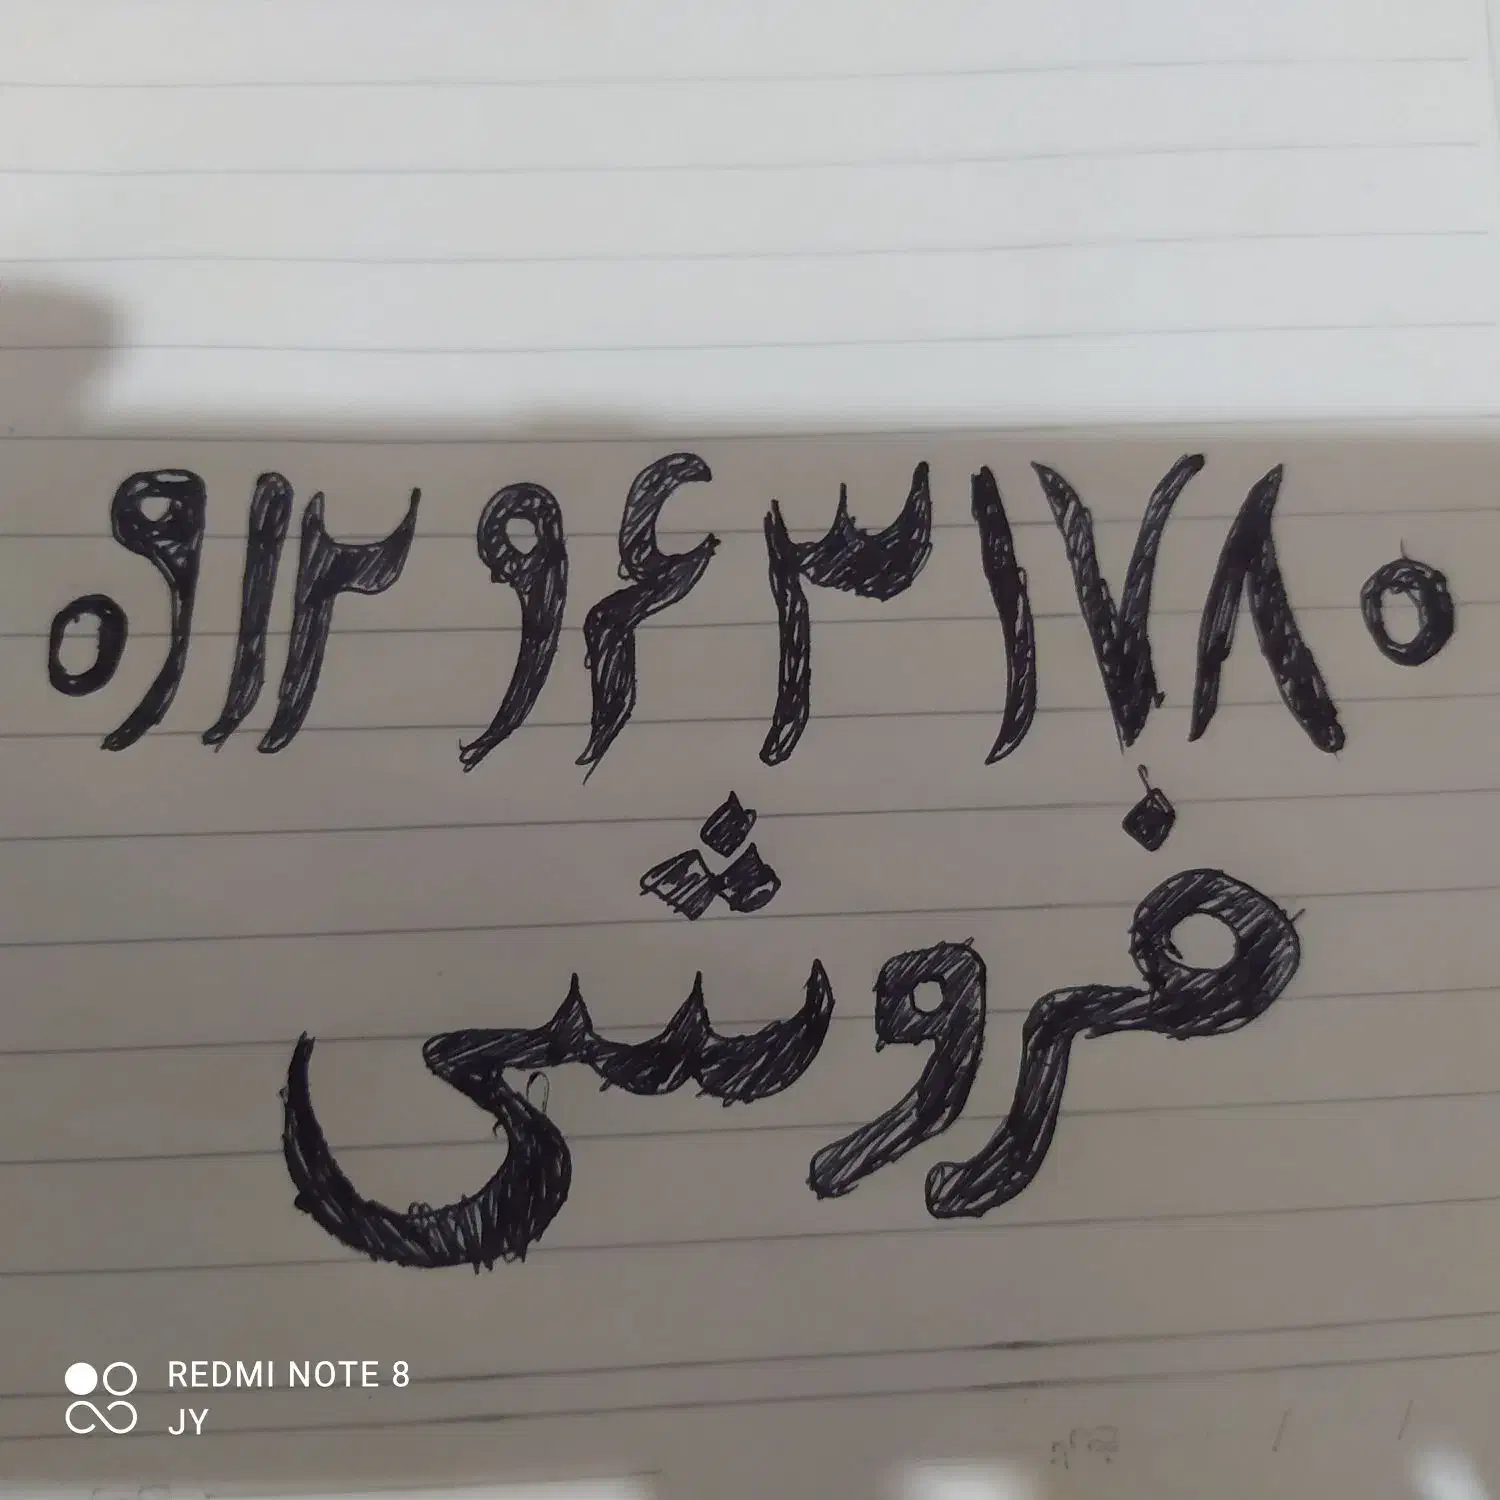 ۰۹۱۲ ۹۶۳ ۱۷۸۰
فروشی
REDMI NOTE 8
JY